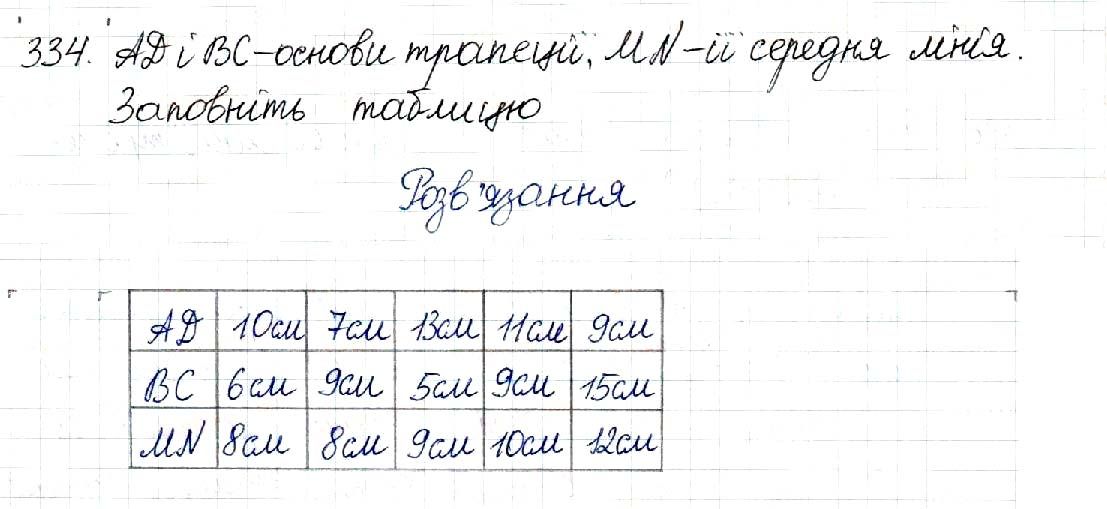 334. AD і BC-основи трапеції, MN-її середня лінія.
Заповніть таблицю
Розв'язання
AD 10см 7см 13см 11см 9см
BC 6см 9см 5см 9см 15см
MN 8см 8см 9см 10см 12см